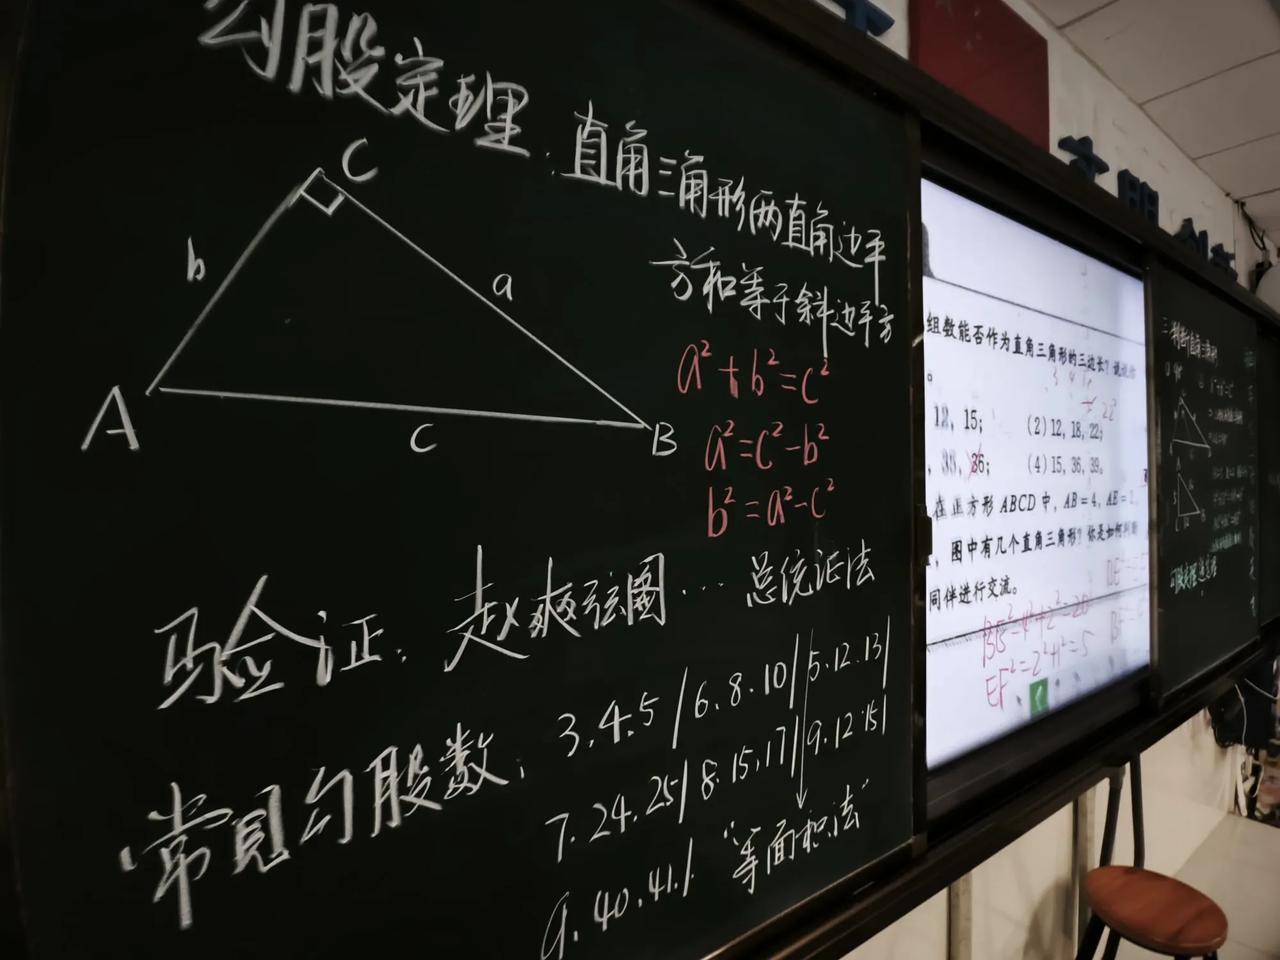 勾股定理:直角三角形两直角边平
方和等于斜边平方
C
b
a
A
c
B
a²+b²=c²
a²=c²-b²
b²=a²-c²
验证:赵爽弦图…总统证法
常见勾股数:3.4.5/6.8.10/5.12.13/
7.24.25/8.15.17/9.12.15/
9.40.41./ “等面积法”
组数能否作为直角三角形的三边长?说说
。
12,15; (2)12,18,22;
,36; (4)15,36,39。
在正方形ABCD中,AB=4,AE=
,图中有几个直角三角形?你是如何判断
同伴进行交流。
=4²+2²=20
EF²=2²+1²=5
明